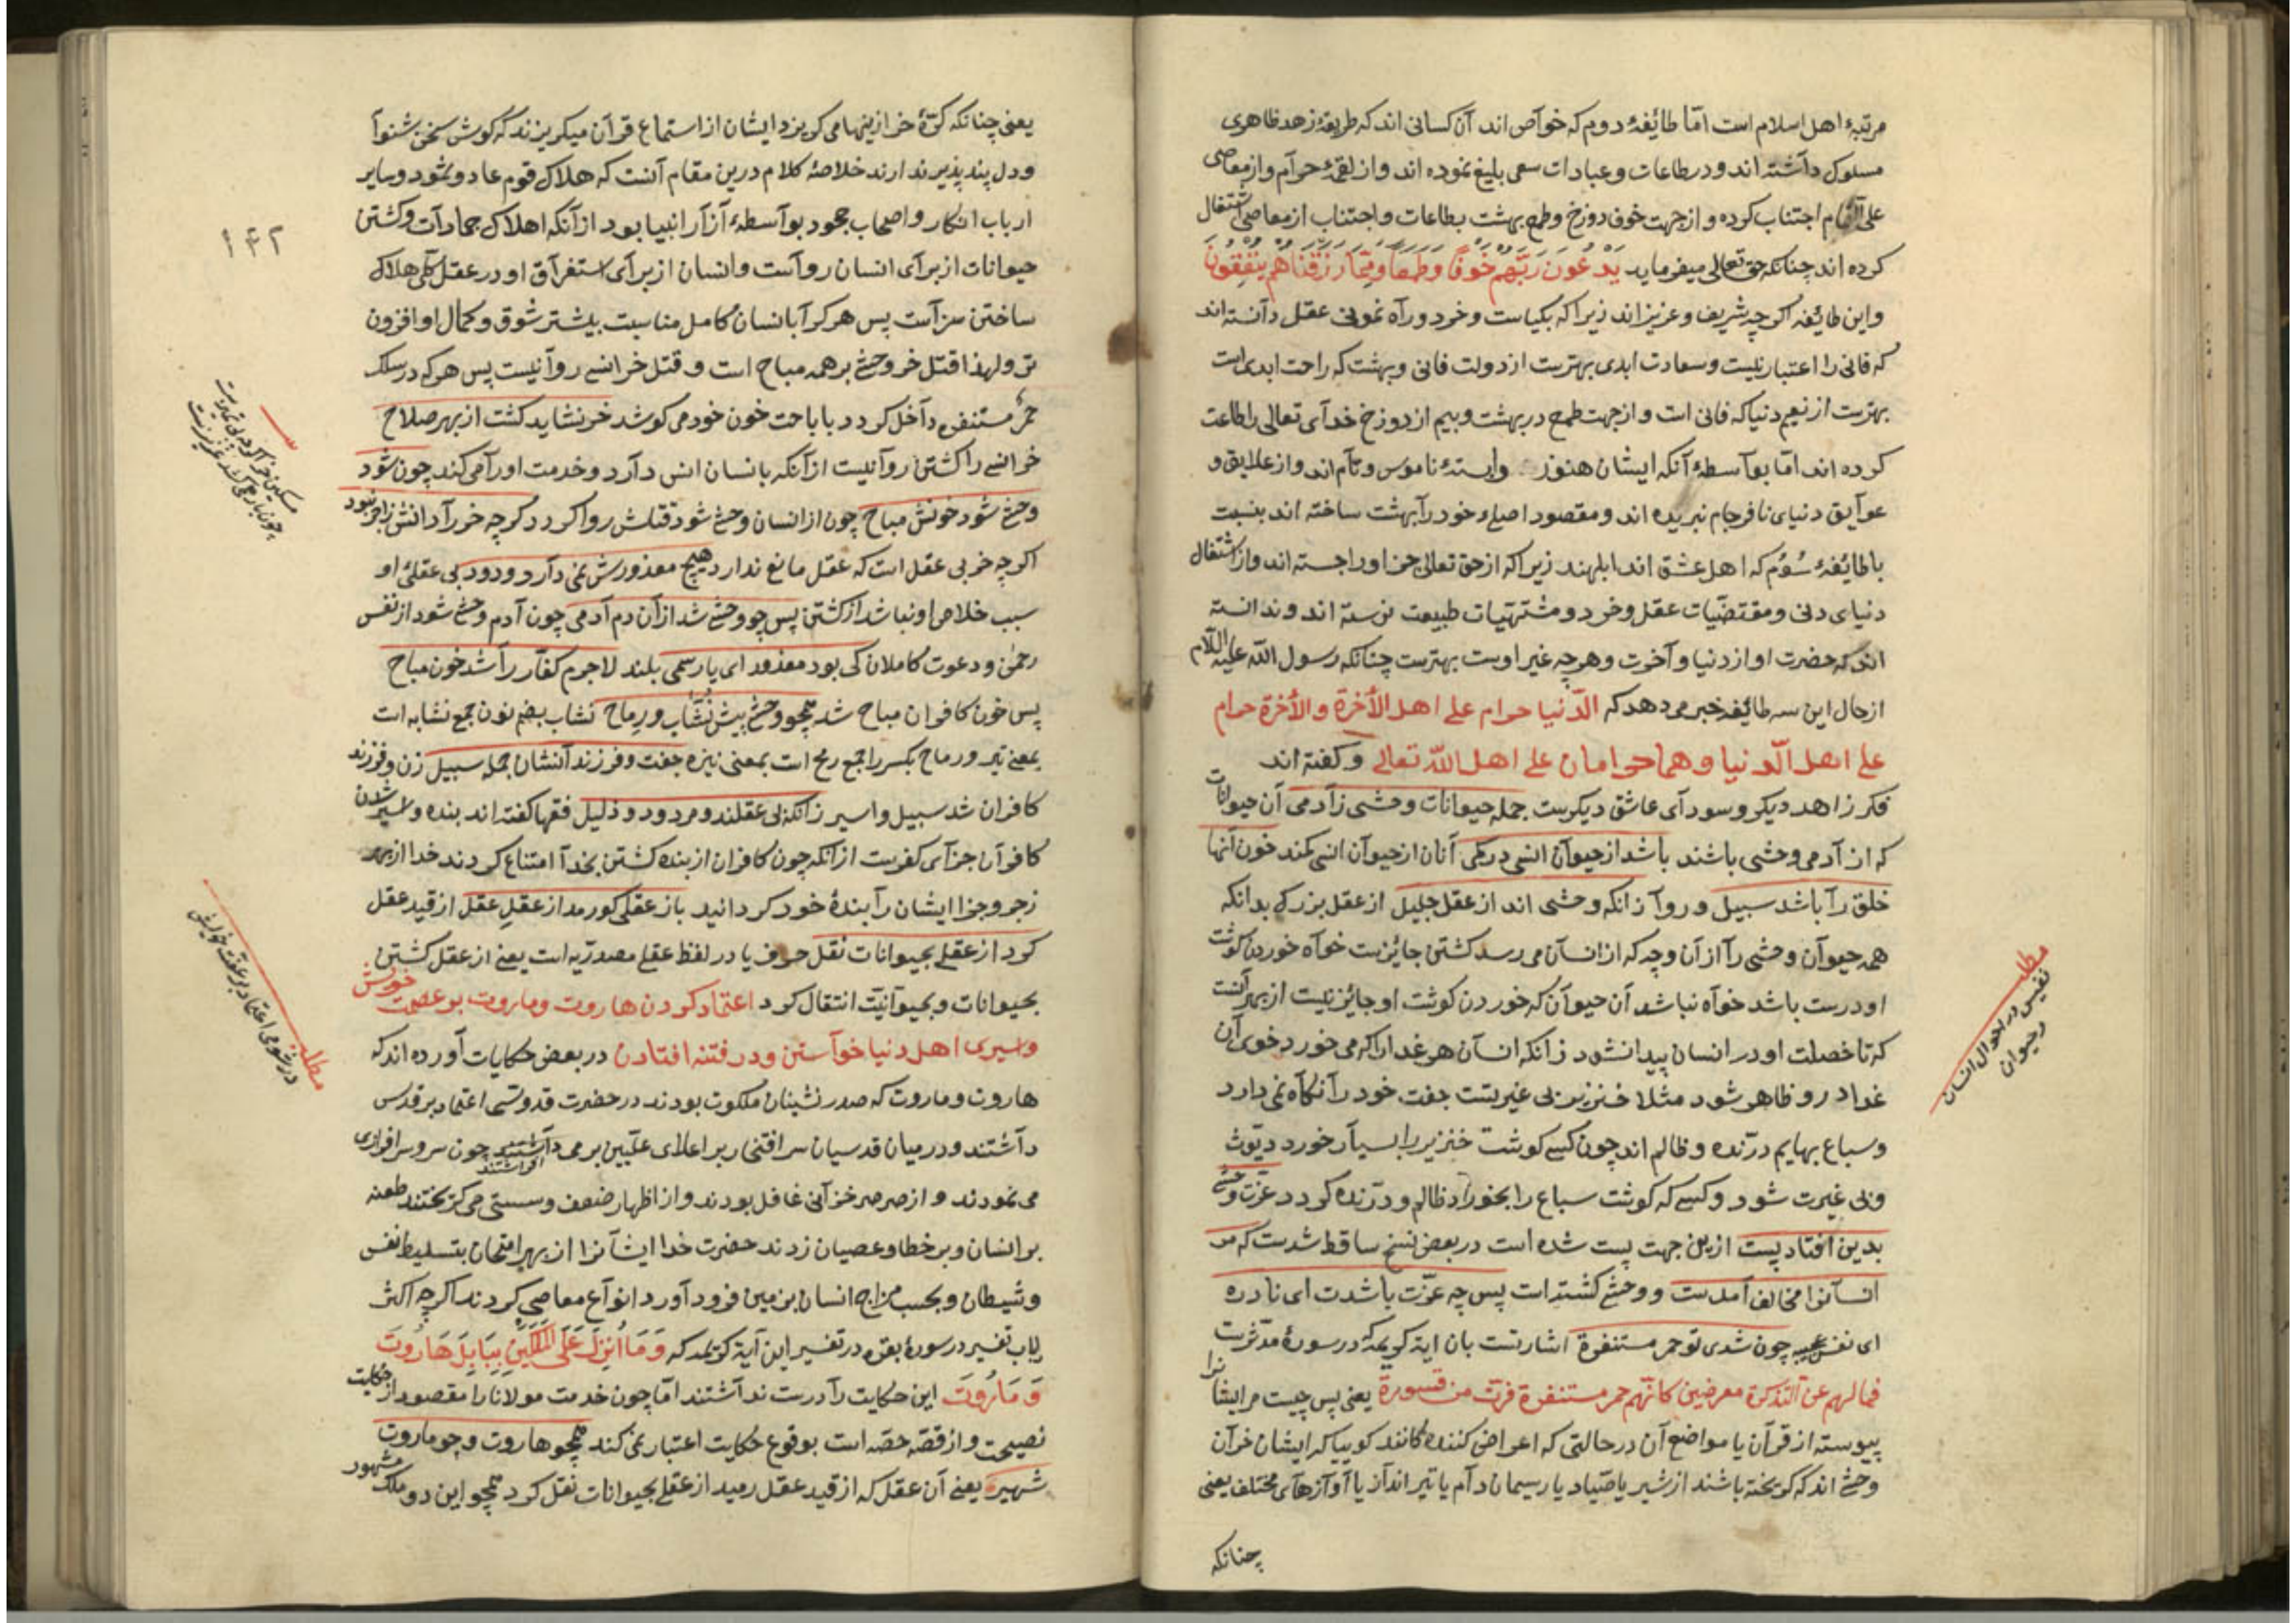 مرتبهٔ اهل اسلام است امّا طائفهٔ دوم که خواص اند آن کسانی اند که طریقهٔ زهد ظاهری
مسلوک داشته اند و در طاعات و عبادات سعی بلیغ نموده اند و از لقمهٔ حرام و از معاصی
علی اجتناب کرده و از جهت خوف دوزخ و طمع بهشت بطاعات و اجتناب از معاصی اشتغال
کرده اند چنانکه حق تعالی میفرماید یَدْعُونَ رَبَّهُمْ خَوْفًا وَطَمَعًا وَمِمَّا رَزَقْنَاهُمْ یُنْفِقُونَ
و این طائفه اکرچه شریف و عزیز اند زیرا که بکیاست و خرد و راه نمونی عقل دانسته اند
که فانی را اعتبار نیست و سعادت ابدی بهترست از دولت فانی و بهشت که راحت ابدی است
بهترست از نعیم دنیا که فانی است و از جهت طمع در بهشت و بیم از دوزخ خدای تعالی را طاعت
کرده اند امّا بواسطهٔ آنکه ایشان هنوز وابستهٔ ناموس و نام اند و از علایق و
عوایق دنیای نافرجام نبریده اند و مقصود اصلی خود را بهشت ساخته اند بنسبت
باطائفهٔ سُوُم که اهل عشق اند ابلهند زیرا که از حق تعالی جز او را جسته اند و از اشتغال
دنیای دنی و مقتضیات عقل و خرد و مشتهیات طبیعت نرسته اند و ندانسته
اند که حضرت او از دنیا و آخرت و هرچه غیر اوست بهترست چنانکه رسول الله علیه السلام
از حال این سه طائفه خبر می دهد که الدّنیا حرام علی اهل الآخرة والآخرة حرام
علی اهل الدّنیا و هما حرامان علی اهل الله تعالی و کفته اند
فکر زاهد دیکر و سودای عاشق دیکرست جمله حیوانات وحشی زآدمی آن حیوانات
که از آدمی وحشی باشند باشد از حیوان انسی در کمی آنان از حیوان انسی کمند خون آنها
خلق را باشد سبیل و روا زانکه وحشی اند از عقل جلیل از عقل بزرک بدانکه
همه حیوان وحشی را از آن وجه که از انسان می رسد کشتن جائزست خواه خوردن کوشت
او درست باشد خواه نباشد آن حیوان که خوردن کوشت او جائز نیست از بهر آنست
که تا خصلت او در انسان پیدا نشود زانکه انسان هر غدا را که می خورد خوی آن
غدا درو ظاهر شود مثلا خنزیز بی غیرتست جفت خود را نکاه نمی دارد
و سباع بهایم درّنده و ظالم اند چون کسی کوشت خنزیر را بسیار خورد دیّوث
و بی غیرت شود و کسی که کوشت سباع را بخورد ظالم و درّنده کردد عزت وحشی
بدین افتاد پست ازین جهت پست شده است در بعض نسخ ساقط شدست که مر
انسانرا مخالف آمدست و وحشی کشته است پس چه عزّت باشدت ای نادره
ای نفس عجیبه چون شدی تو حمر مستنفرة اشارتست بان ایهٔ کریمه که در سورهٔ مدّثرست
فما لهم عن التذکرة معرضین کانهم حمر مستنفرة فرّت من قسورة یعنی پس چیست مر ایشانرا
پیوسته از قرآن یا مواضع آن در حالتی که اعراض کننده کانند کوییا که ایشان خران
وحشی اند که کریخته باشند از شیر یا صیّاد یا ریسمان دام یا تیر انداز یا آوازهای مختلف یعنی
چنانکه
مطلب
نفیس در احوال انسان
و حیوان
یعنی چنانکه کرّهٔ خر ازینها می کریزد ایشان از استماع قرآن میکریزند که کوش سخن شنوا
و دل پند پذیر ندارند خلاصهٔ کلام درین مقام آنست که هلاک قوم عاد و ثمود و سایر
ارباب انکار و اصحاب جحود بواسطهٔ آزار انبیا بود از آنکه اهلاک جمادات و کشتن
حیوانات از برای انسان رواست و انسان از برای استغراق او در عقل کلّی هلاک
ساختن سزاست پس هر کرا بانسان کامل مناسبت بیشتر شوق و کمال او افزون
تر ولهذا قتل خر وحشی بر همه مباح است و قتل خر انسی روا نیست پس هر که در سلک
حمر مستنفره داخل کردد باباحت خون خود می کوشد خر نشاید کشت از بهر صلاح
خر انسی را کشتن روا نیست از آنکه بانسان انس دارد و خدمت او را می کند چون شود
وحشی شود خونش مباح چون از انسان وحشی شود قتلش روا کردد کرچه خر را دانش زاجر نبود
اکرچه خر بی عقل است که عقل مانع ندارد هیچ معذورش نمی دارد ودود بی عقلی او
سبب خلاص او نباشد از کشتن پس چو وحشی شد از آن دم آدمی چون آدم وحشی شود از نفس
رحمن و دعوت کاملان کی بود معذور ای یار سمی بلند لاجرم کفّار را شد خون مباح
پس خون کافران مباح شد همچو وحشی پیش نشّاب و رماح نشاب بضم نون جمع نشابه است
بمعنی تیر و رماح بکسر را جمع رمح است بمعنی نیزه جفت و فرزند آنشان جمله سبیل زن و فرزند
کافران شد سبیل و اسیر زانکه بی عقلند و مردود و ذلیل فقها کفته اند بنده و اسیر شدن
کافران جزای کفرست از آنکه چون کافران از بنده کشتن بخدا امتناع کردند خدا از بهر
زجر و جزا ایشان را بندهٔ خود کردانید باز عقلی کو رمد از عقلِ عقل از قید عقل
کرد از عقلی بحیوانات نقل حرف یا در لفظ عقلی مصدرّیه است یعنی از عقل کشتن
بحیوانات و بحیوانیّت انتقال کرد اعتماد کردن هاروت و ماروت بر عصمت خویش
و امیری اهل دنیا خواستن و در فتنه افتادن در بعض حکایات آورده اند که
هاروت و ماروت که صدر نشینان ملکوت بودند در حضرت قدّوسی اعتماد بر قدس
داشتند و در میان قدسیان سر افتخار بر اعلای علیین بر می افراشتند چون سر و سرافرازی
می نمودند و از صرصر خزانی غافل بودند و از اظهار ضعف و سستی می کریختند طعنه
بر انسان و بر خطا و عصیان زدند حضرت خدا ایشانرا از بهر امتحان بتسلیط نفس
و شیطان و بحسب مزاج انسان بزمین فرود آورد انواع معاصی کردند اکرچه اکثر
ارباب تفسیر در سورهٔ بقره در تفسیر این آیهٔ کریمه که وَمَا اُنْزِلَ عَلَی الْمَلَکَیْنِ بِبَابِلَ هَارُوتَ
وَمَارُوتَ این حکایت را درست نداشتند امّا چون خدمت مولانا را مقصود از حکایت
نصیحت و از قصّه حصّه است بوقوع حکایت اعتبار نمی کند همچو هاروت و چو ماروت
شهیر یعنی آن عقل که از قید عقل رمید از عقلی بحیوانات نقل کرد همچو این دو ملک مشهور
۱۴۲
مطلب
در شومی اعتماد بر عفّت خویش